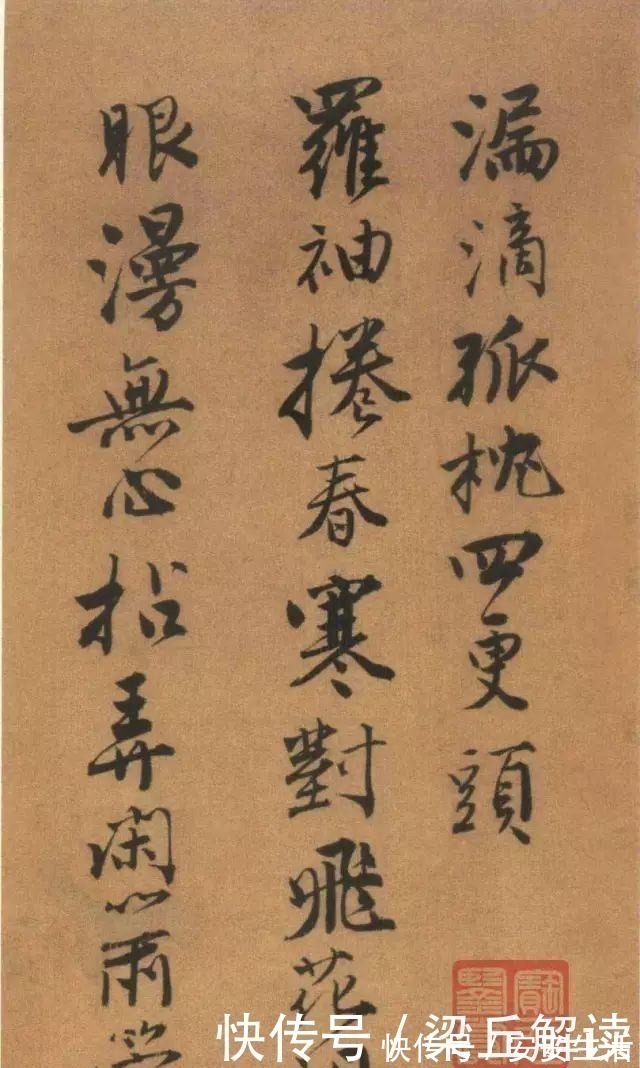 漏滴孤枕四更頭
羅袖捲春寒對飛花
眼漫無心拈弄閑
快传号 / 梁丘解读
快传号